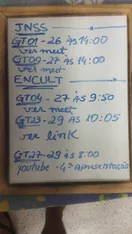 JNSS
GT01 - 26 às 14:00
ver meet
GT09 - 27 às 14:00
ver meet
ENCULT
GT04 - 27 às 9:50
ver meet
GT23 - 29 às 10:05
ver link
GT27 - 29 às 8:00
youtube - 4ª apresentação